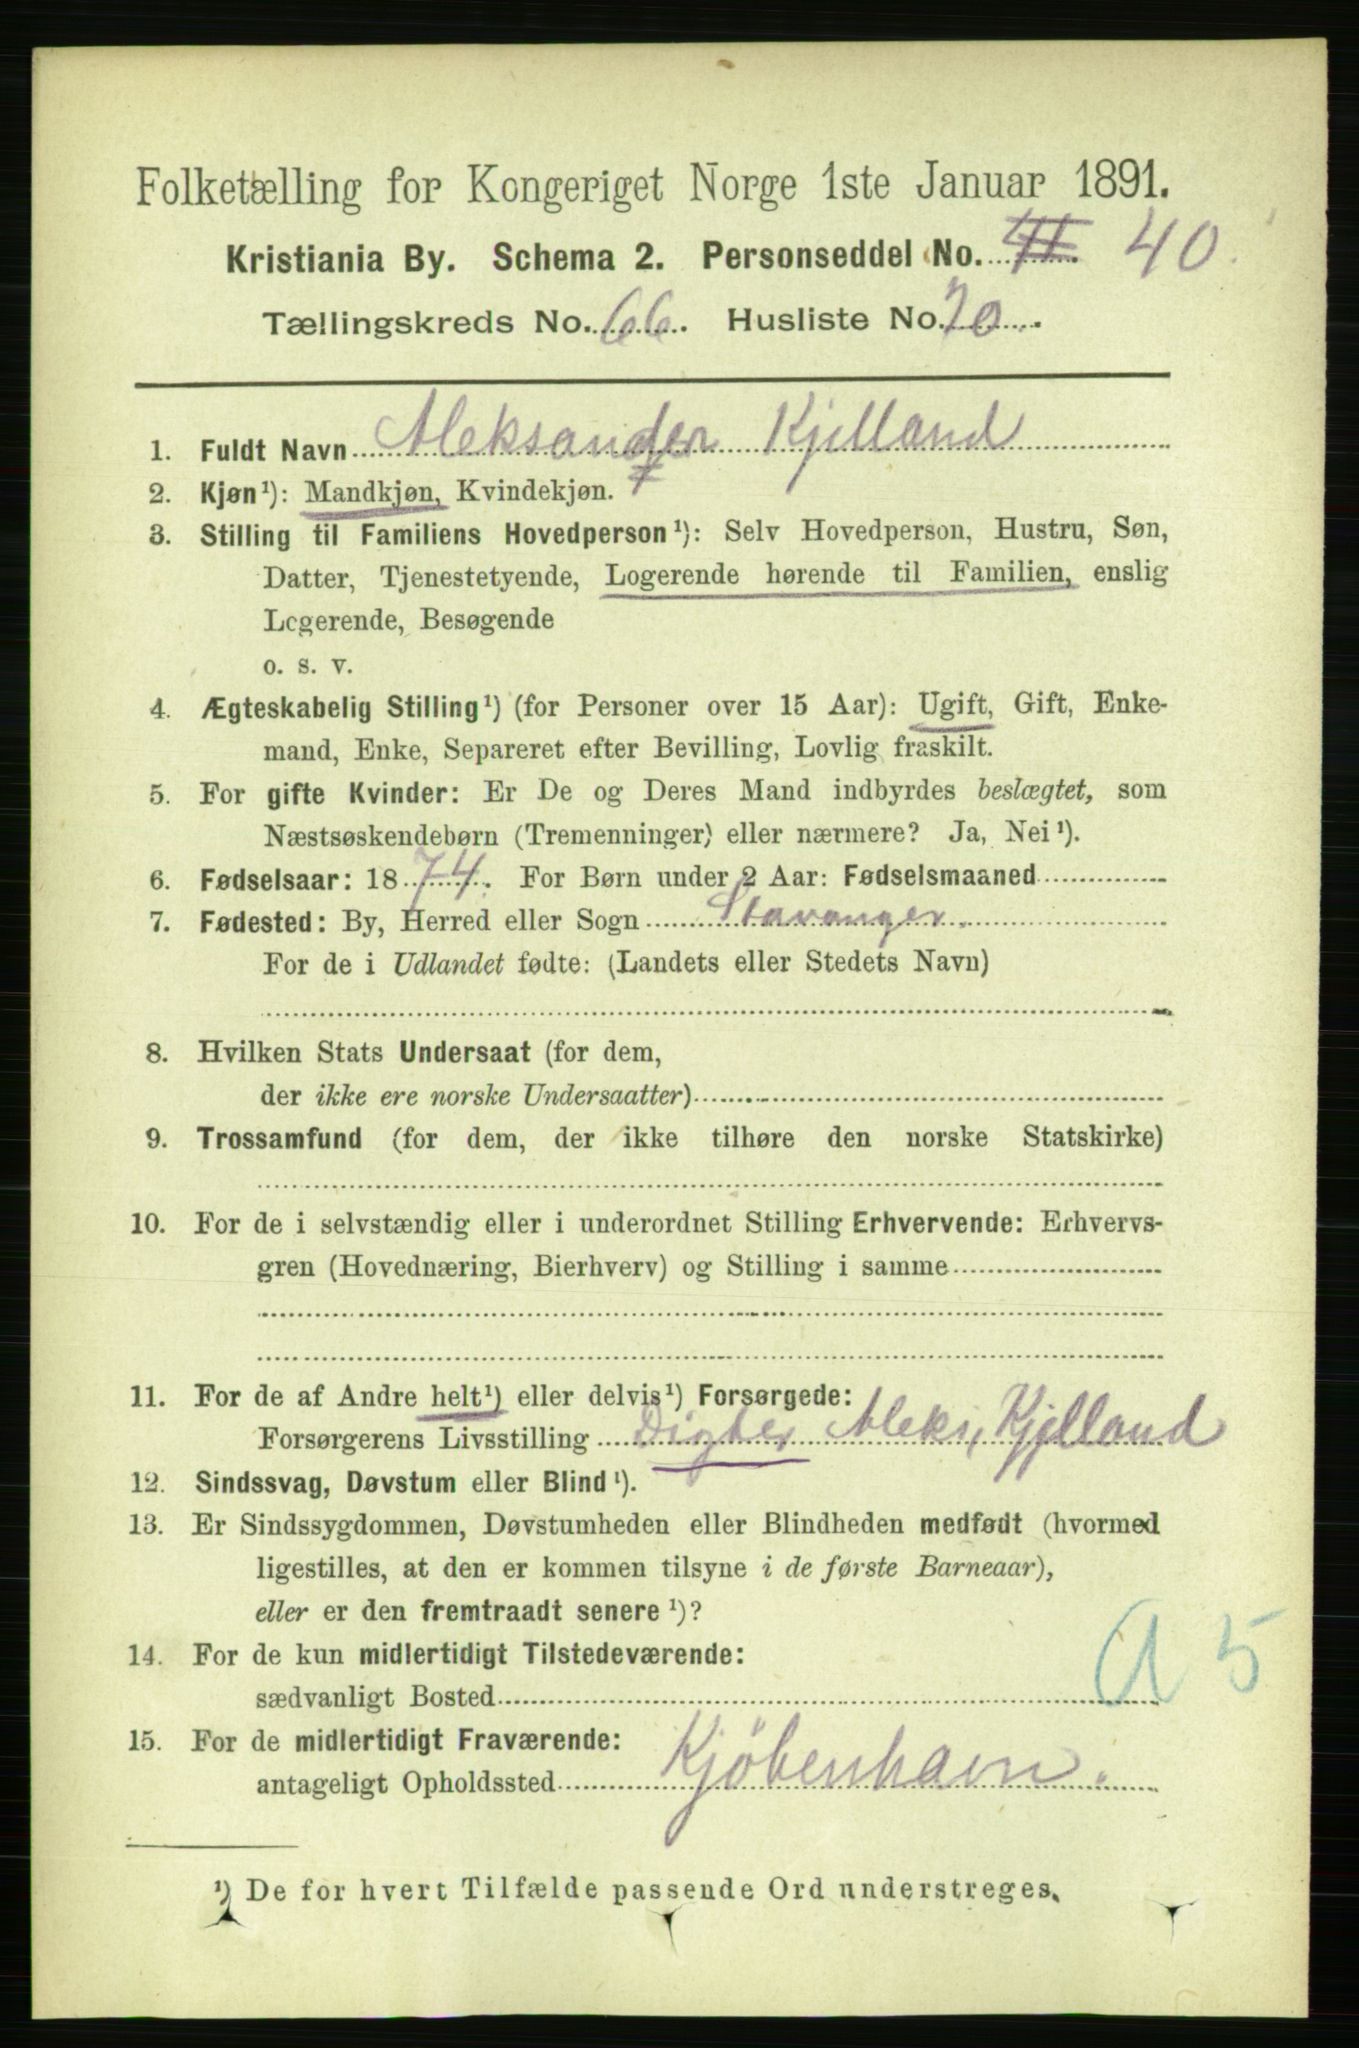 Folketælling for Kongeriget Norge 1ste Januar 1891.
Kristiania By. Schema 2. Personseddel No. 41. 40
Tællingskreds No. 66. Husliste No. 70.
1. Fuldt Navn Aleksander Kjelland
2. Kjøn¹): Mandkjøn, Kvindekjøn.
3. Stilling til Familiens Hovedperson¹): Selv Hovedperson, Hustru, Søn,
Datter, Tjenestetyende, Logerende hørende til Familien, enslig
Logerende, Besøgende
o. s. v.
4. Ægteskabelig Stilling¹) (for Personer over 15 Aar): Ugift, Gift, Enke-
mand, Enke, Separeret efter Bevilling, Lovlig fraskilt.
5. For gifte Kvinder: Er De og Deres Mand indbyrdes beslægtet, som
Næstsøskendebørn (Tremenninger) eller nærmere? Ja, Nei¹).
6. Fødselsaar: 1874. For Børn under 2 Aar: Fødselsmaaned
7. Fødested: By, Herred eller Sogn Stavanger.
For de i Udlandet fødte: (Landets eller Stedets Navn)
8. Hvilken Stats Undersaat (for dem,
der ikke ere norske Undersaatter)
9. Trossamfund (for dem, der ikke tilhøre den norske Statskirke)
10. For de i selvstændig eller i underordnet Stilling Erhvervende: Erhvervs-
gren (Hovednæring, Bierhverv) og Stilling i samme
11. For de af Andre helt¹) eller delvis¹) Forsørgede:
Forsørgerens Livsstilling Digter Aleks, Kjelland
12. Sindssvag, Døvstum eller Blind¹).
13. Er Sindssygdommen, Døvstumheden eller Blindheden medfødt (hvormed
ligestilles, at den er kommen tilsyne i de første Barneaar),
eller er den fremtraadt senere¹)?
14. For de kun midlertidigt Tilstedeværende:
sædvanligt Bosted
A 5
15. For de midlertidigt Fraværende:
antageligt Opholdssted Kjöbenhavn.
¹) De for hvert Tilfælde passende Ord understreges.